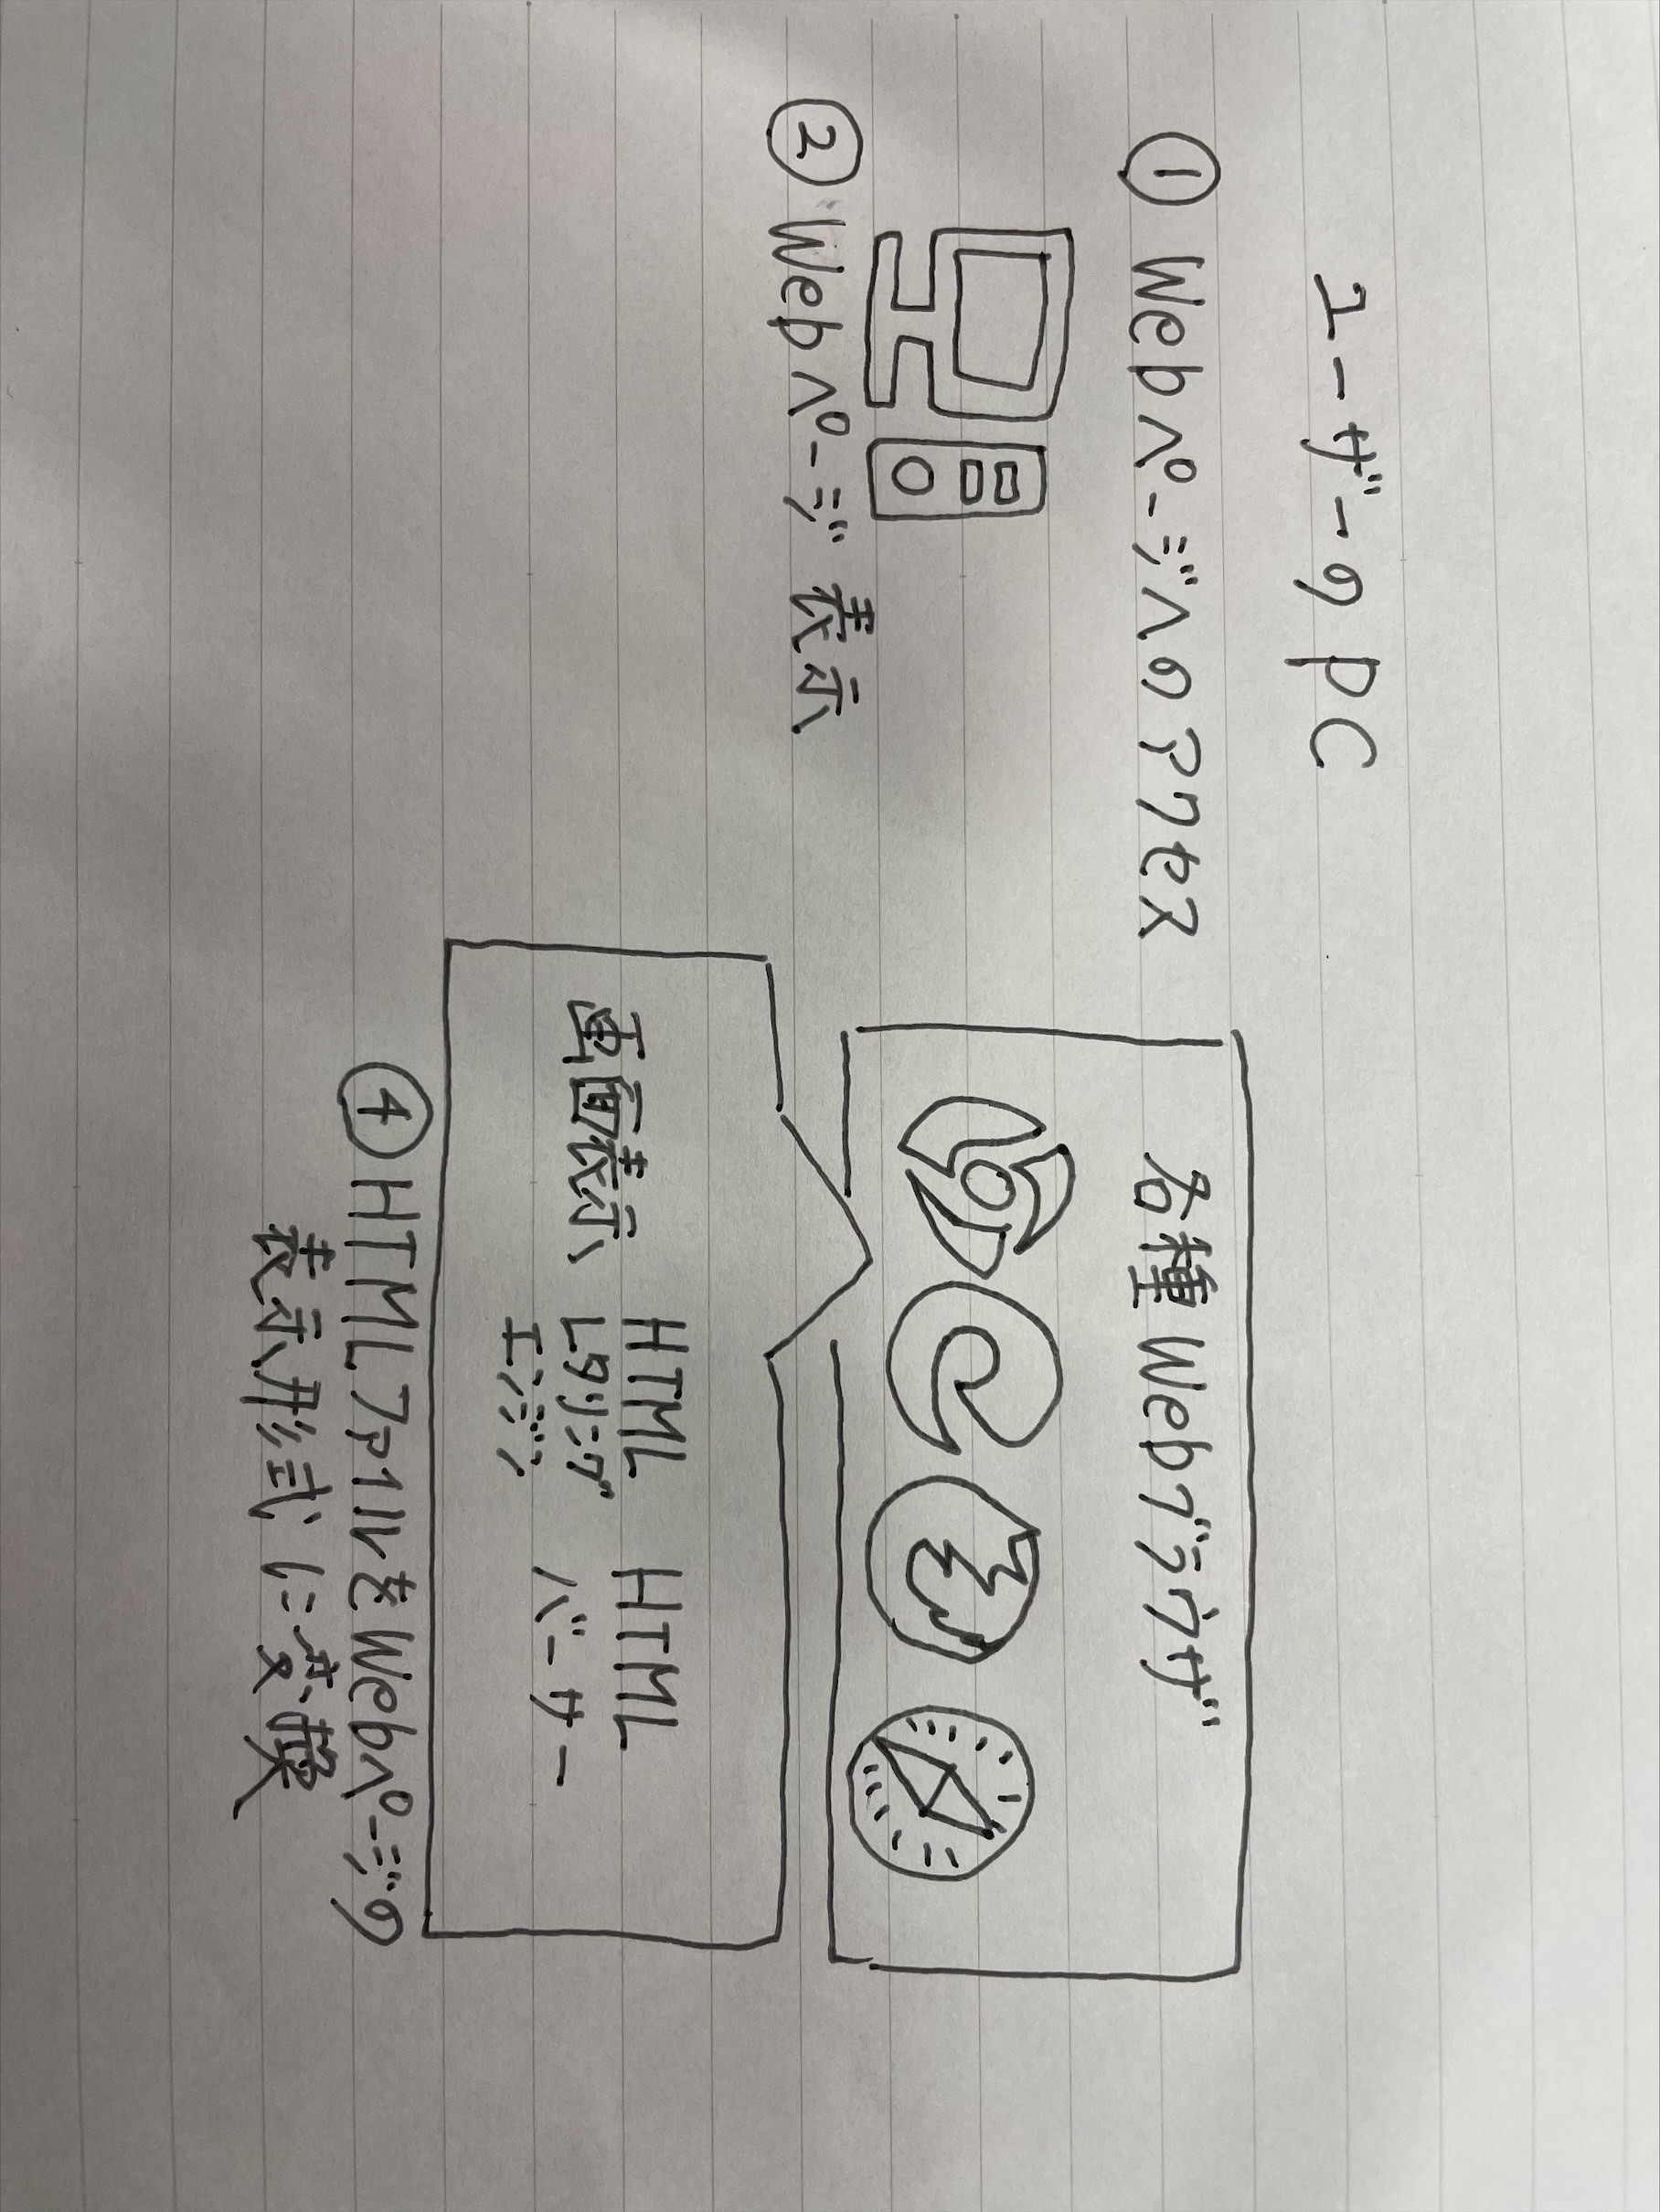 ユーザーのPC
① Webページへのアクセス
② Webページ表示
各種Webブラウザ
画面表示
HTML
レタリング
エンジン
HTML
バーサー
④ HTMLファイルをWebページの
表示形式に変換